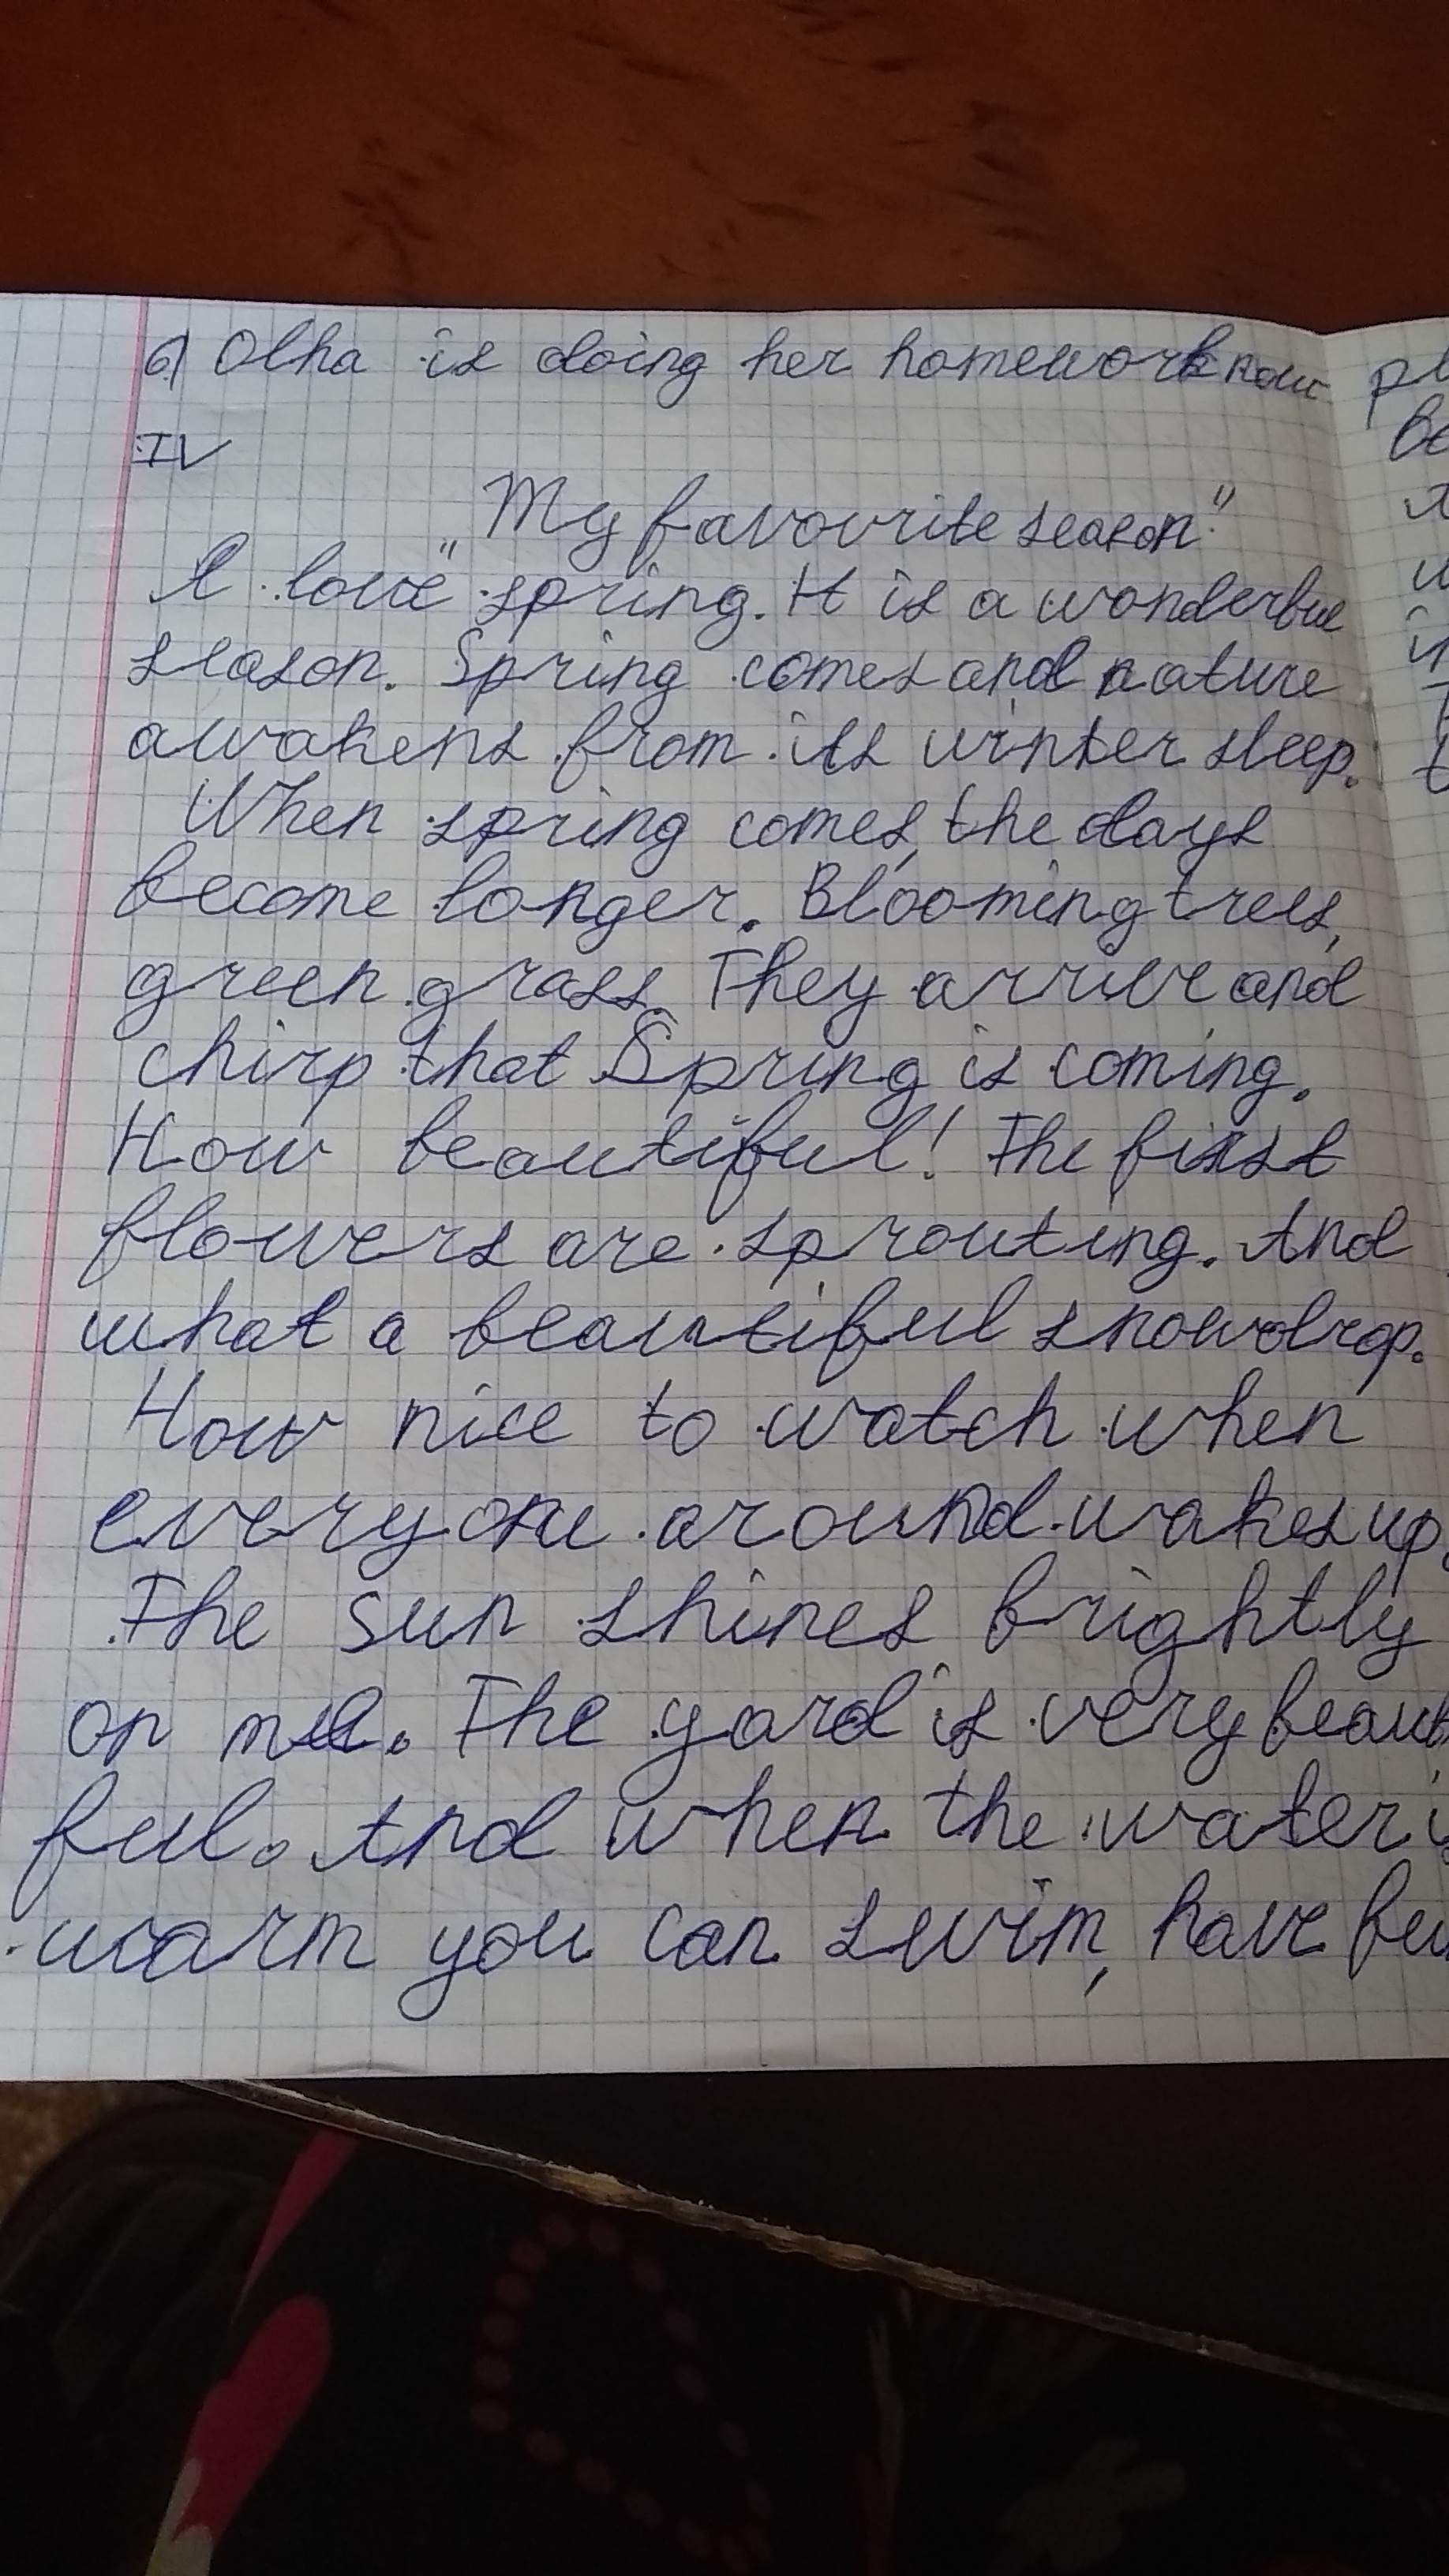 6) Olha is doing her homework now
IV
"My favourite season"
I love spring. It is a wonderful
season. Spring comes and nature
awakens from its winter sleep.
When spring comes, the days
become longer. Blooming trees,
green grass. They arrive and
chirp that Spring is coming.
How beautiful! The first
flowers are sprouting. And
what a beautiful snowdrop.
How nice to watch when
everyone around wakes up.
The sun shines brightly
on me. The yard is very beauti
ful. And when the water is
warm you can swim, have fu